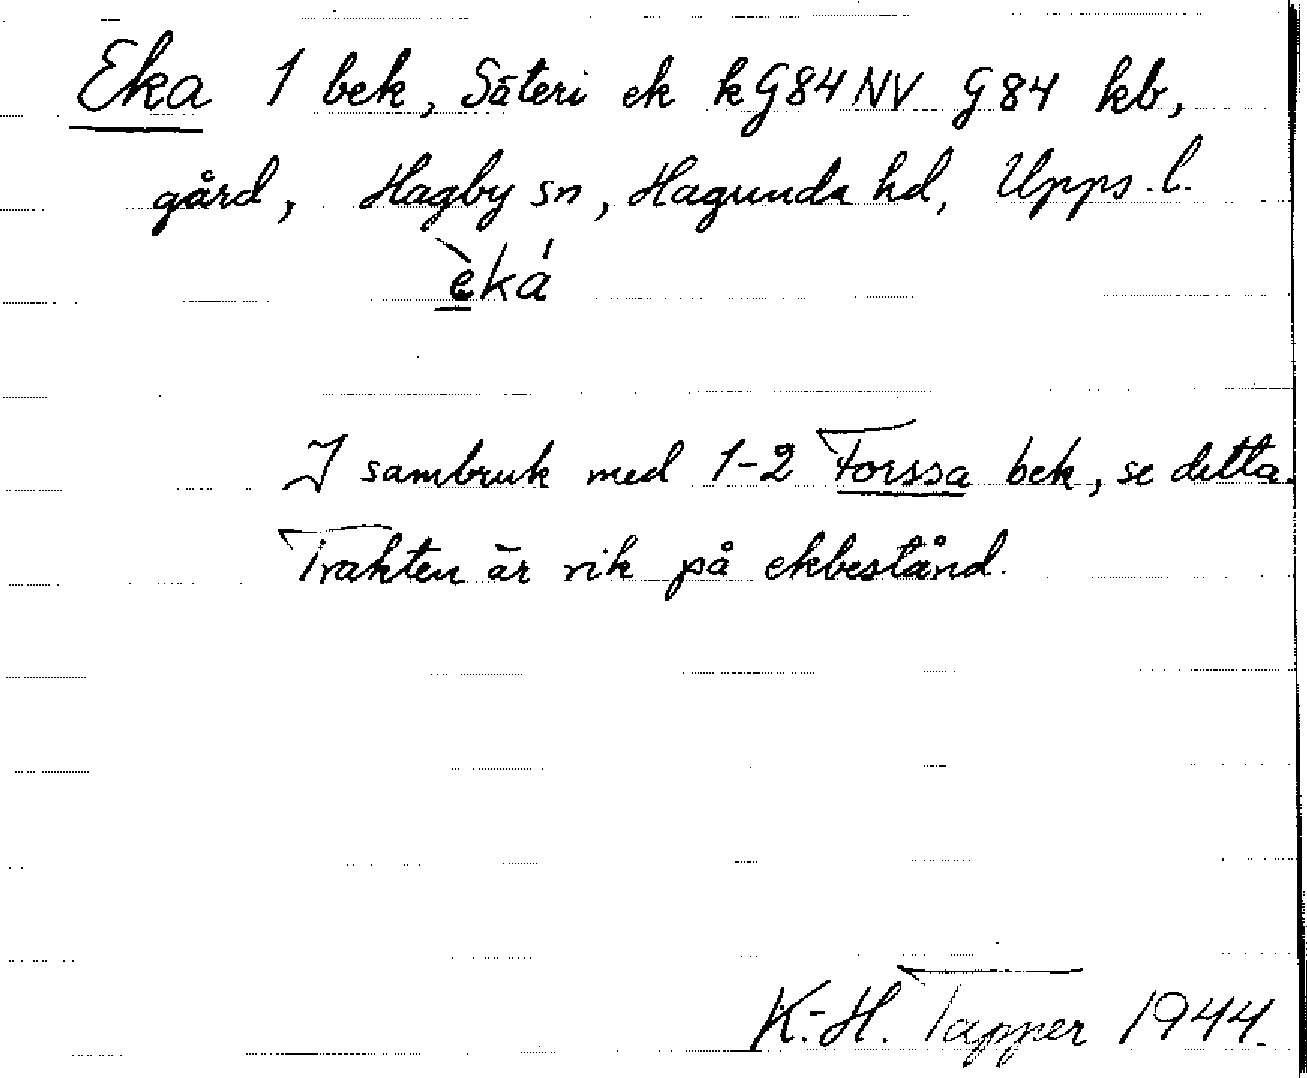 Eka 1 bek, Säteri ek k G84 NV G 84 kb,
gård, Hagby sn, Hagunda hd, Upps. l.
èká
I sambruk med 1-2 Forssa bek, se detta.
Trakten är rik på ekbestånd.
K.-H. Tapper 1944.